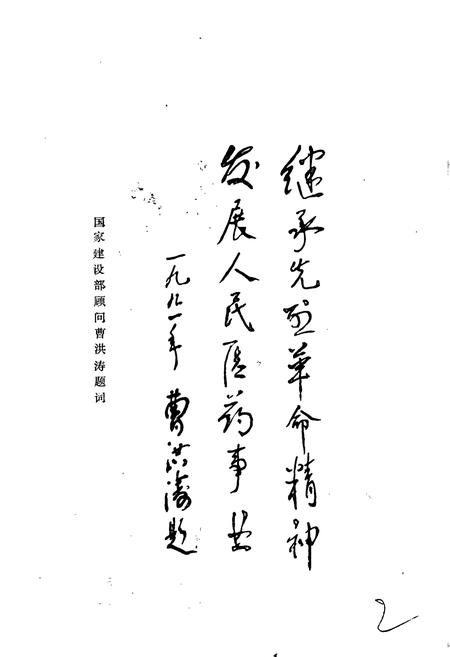 继承先烈革命精神
发展人民医药事业
一九九一年 曹洪涛题
国家建设部顾问曹洪涛题词
2